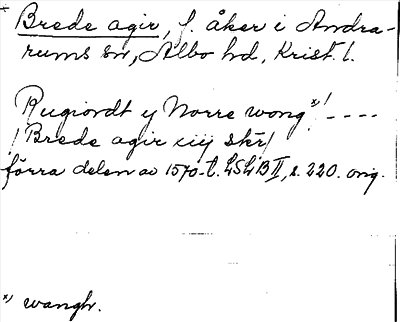 Brede agir, f. åker i Andra-
rums sn, Albo hd, Krist. l.
Rugiordt y Norre wong*)! ----
/ Brede agir iiij skr/
förra delen av 1570-t. LSLB II, s. 220. orig.
*) wangh.